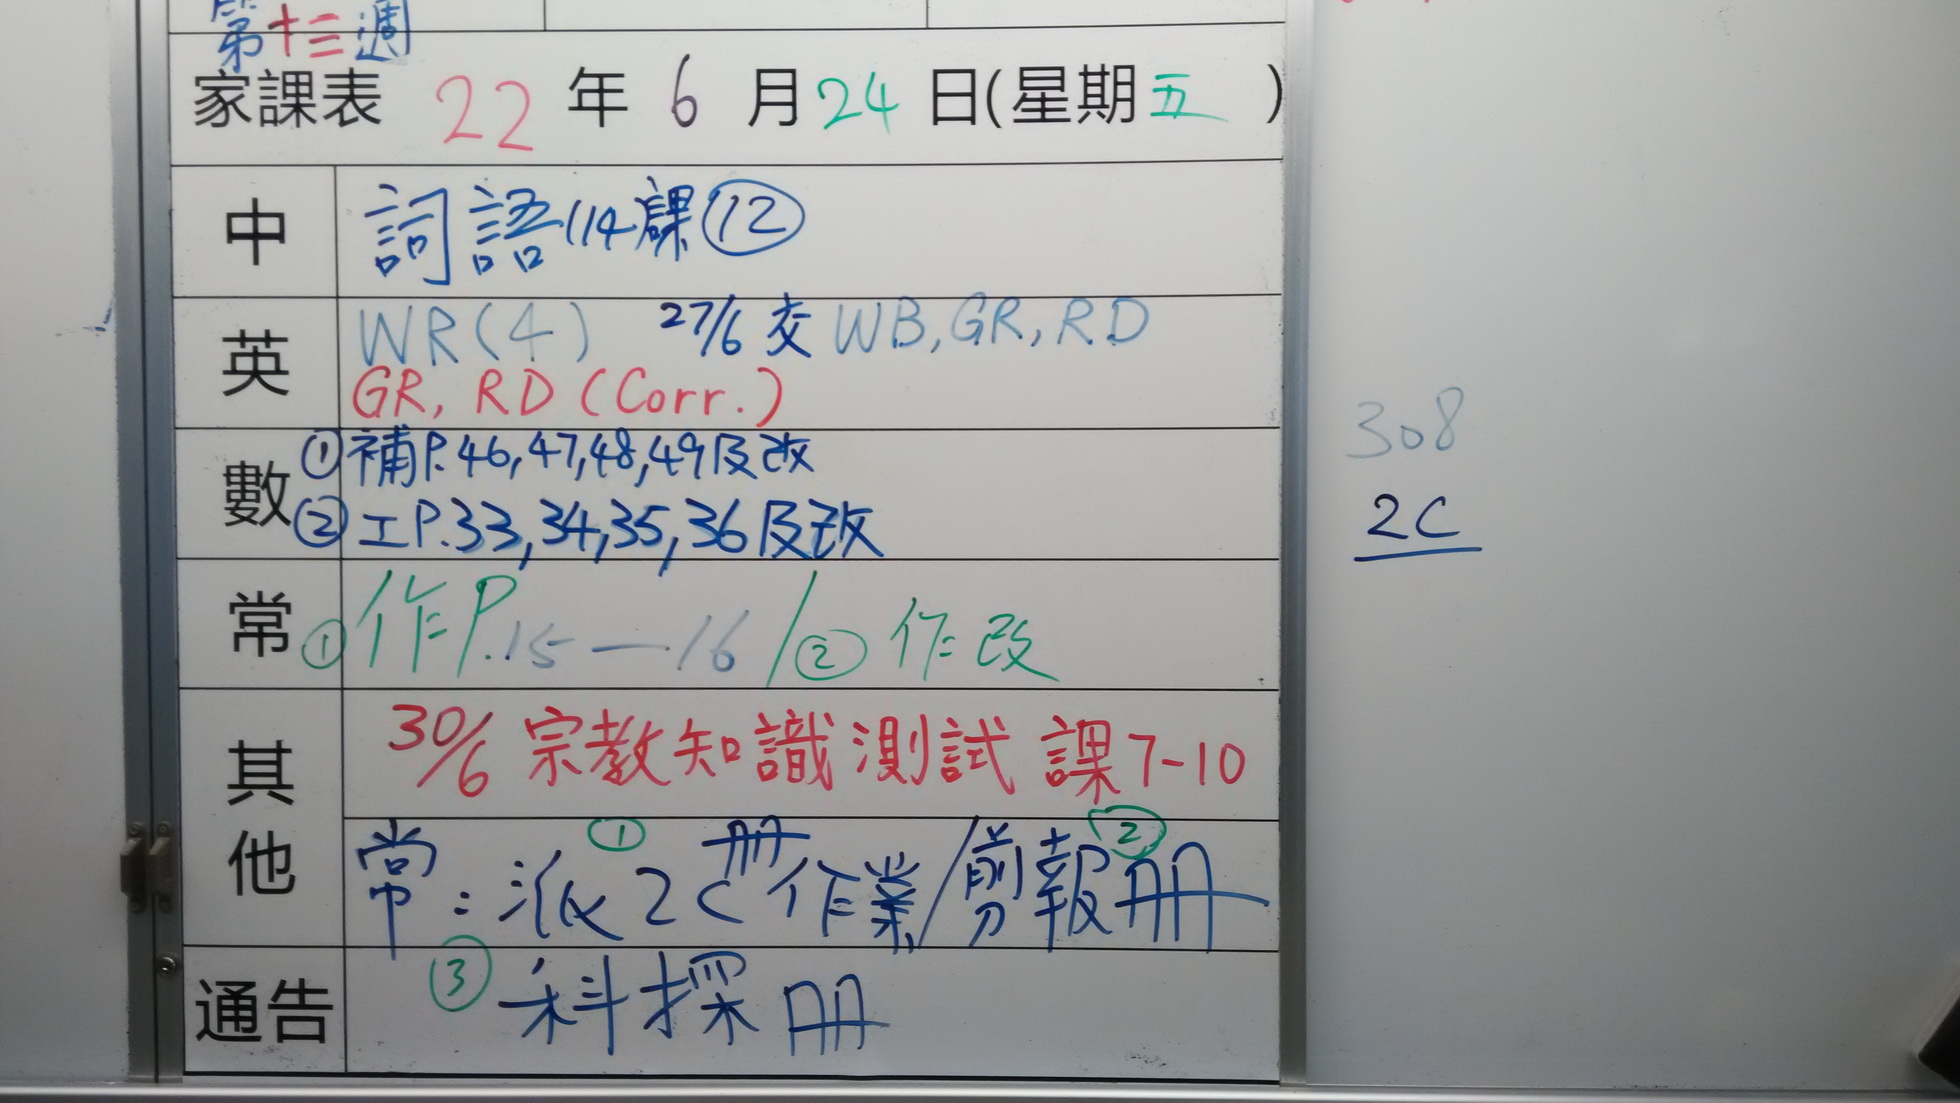 第十三週
家課表 22 年 6 月 24 日(星期五 )
中 詞語(14課)⑫
英 WR(4) 27/6 交 WB, GR, RD
GR, RD (Corr.)
數 ①補P.46,47,48,49及改
②工P.33,34,35,36及改
常 ①作P.15—16/②作改
其他 30/6 宗教知識測試 課7-10
常:派2C①冊作業/剪報冊②
通告 ③科探冊
308
2C